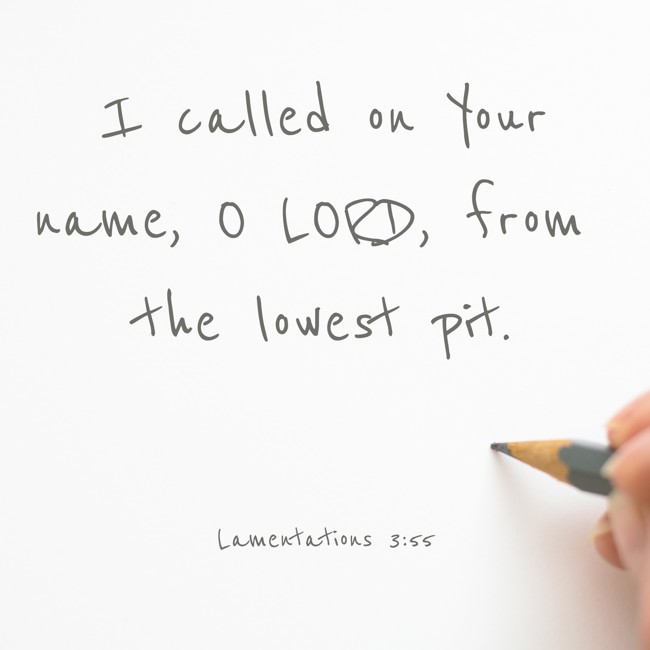 I called on Your
name, O LORD, from
the lowest pit.
Lamentations 3:55